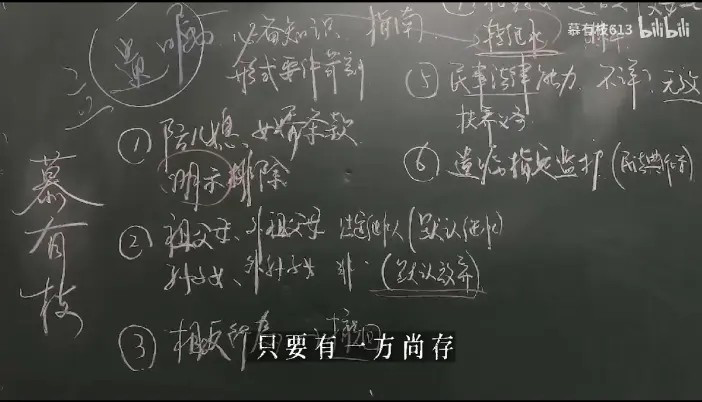 慕有枝613 bilibili
遗嘱
必备知识 指南
形式要件苛刻
① 防儿媳、女婿条款
明示排除
② 祖父母、外祖父母 法定继承人(默认继承)
孙子女、外孙子女 非 (默认放弃)
③ 相反行为 撤回
转继承
⑤ 民事法律能力 不详 无效
扶养义务
⑥ 遗嘱指定监护
慕有枝
只要有一方尚存